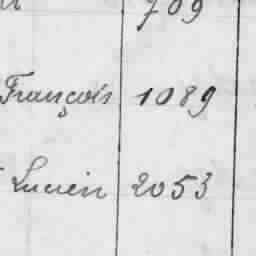 709
François 1089
Lucien 2053